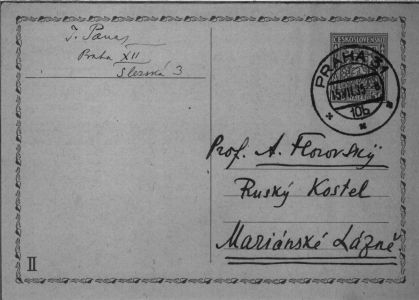 Praha XII
Slezská 3
ČESKOSLOVENSKO
PRAHA 31
10b
Prof. A. Florovský
Ruský Kostel
Mariánské Lázně
II